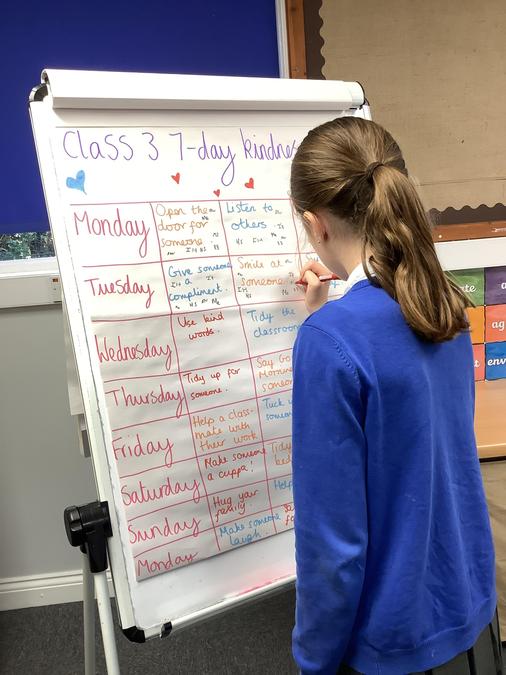 Class 3 7-day kindnes
Monday
Open the
door for
someone
Listen to
others
Tuesday
Give someone
a
compliment.
Smile at a
someone
Wednesday
Use kind
words.
Tidy the
classroom
Thursday
Tidy up for
someone.
Say Go
Mornin
someon
Friday
Help a class-
mate with
their work
Tuck
someon
Saturday
Make someone
a cuppa!
Tidy
bed
Sunday
Hug your
family
Help
Monday
Make someone
laugh.
te
a
ag
env